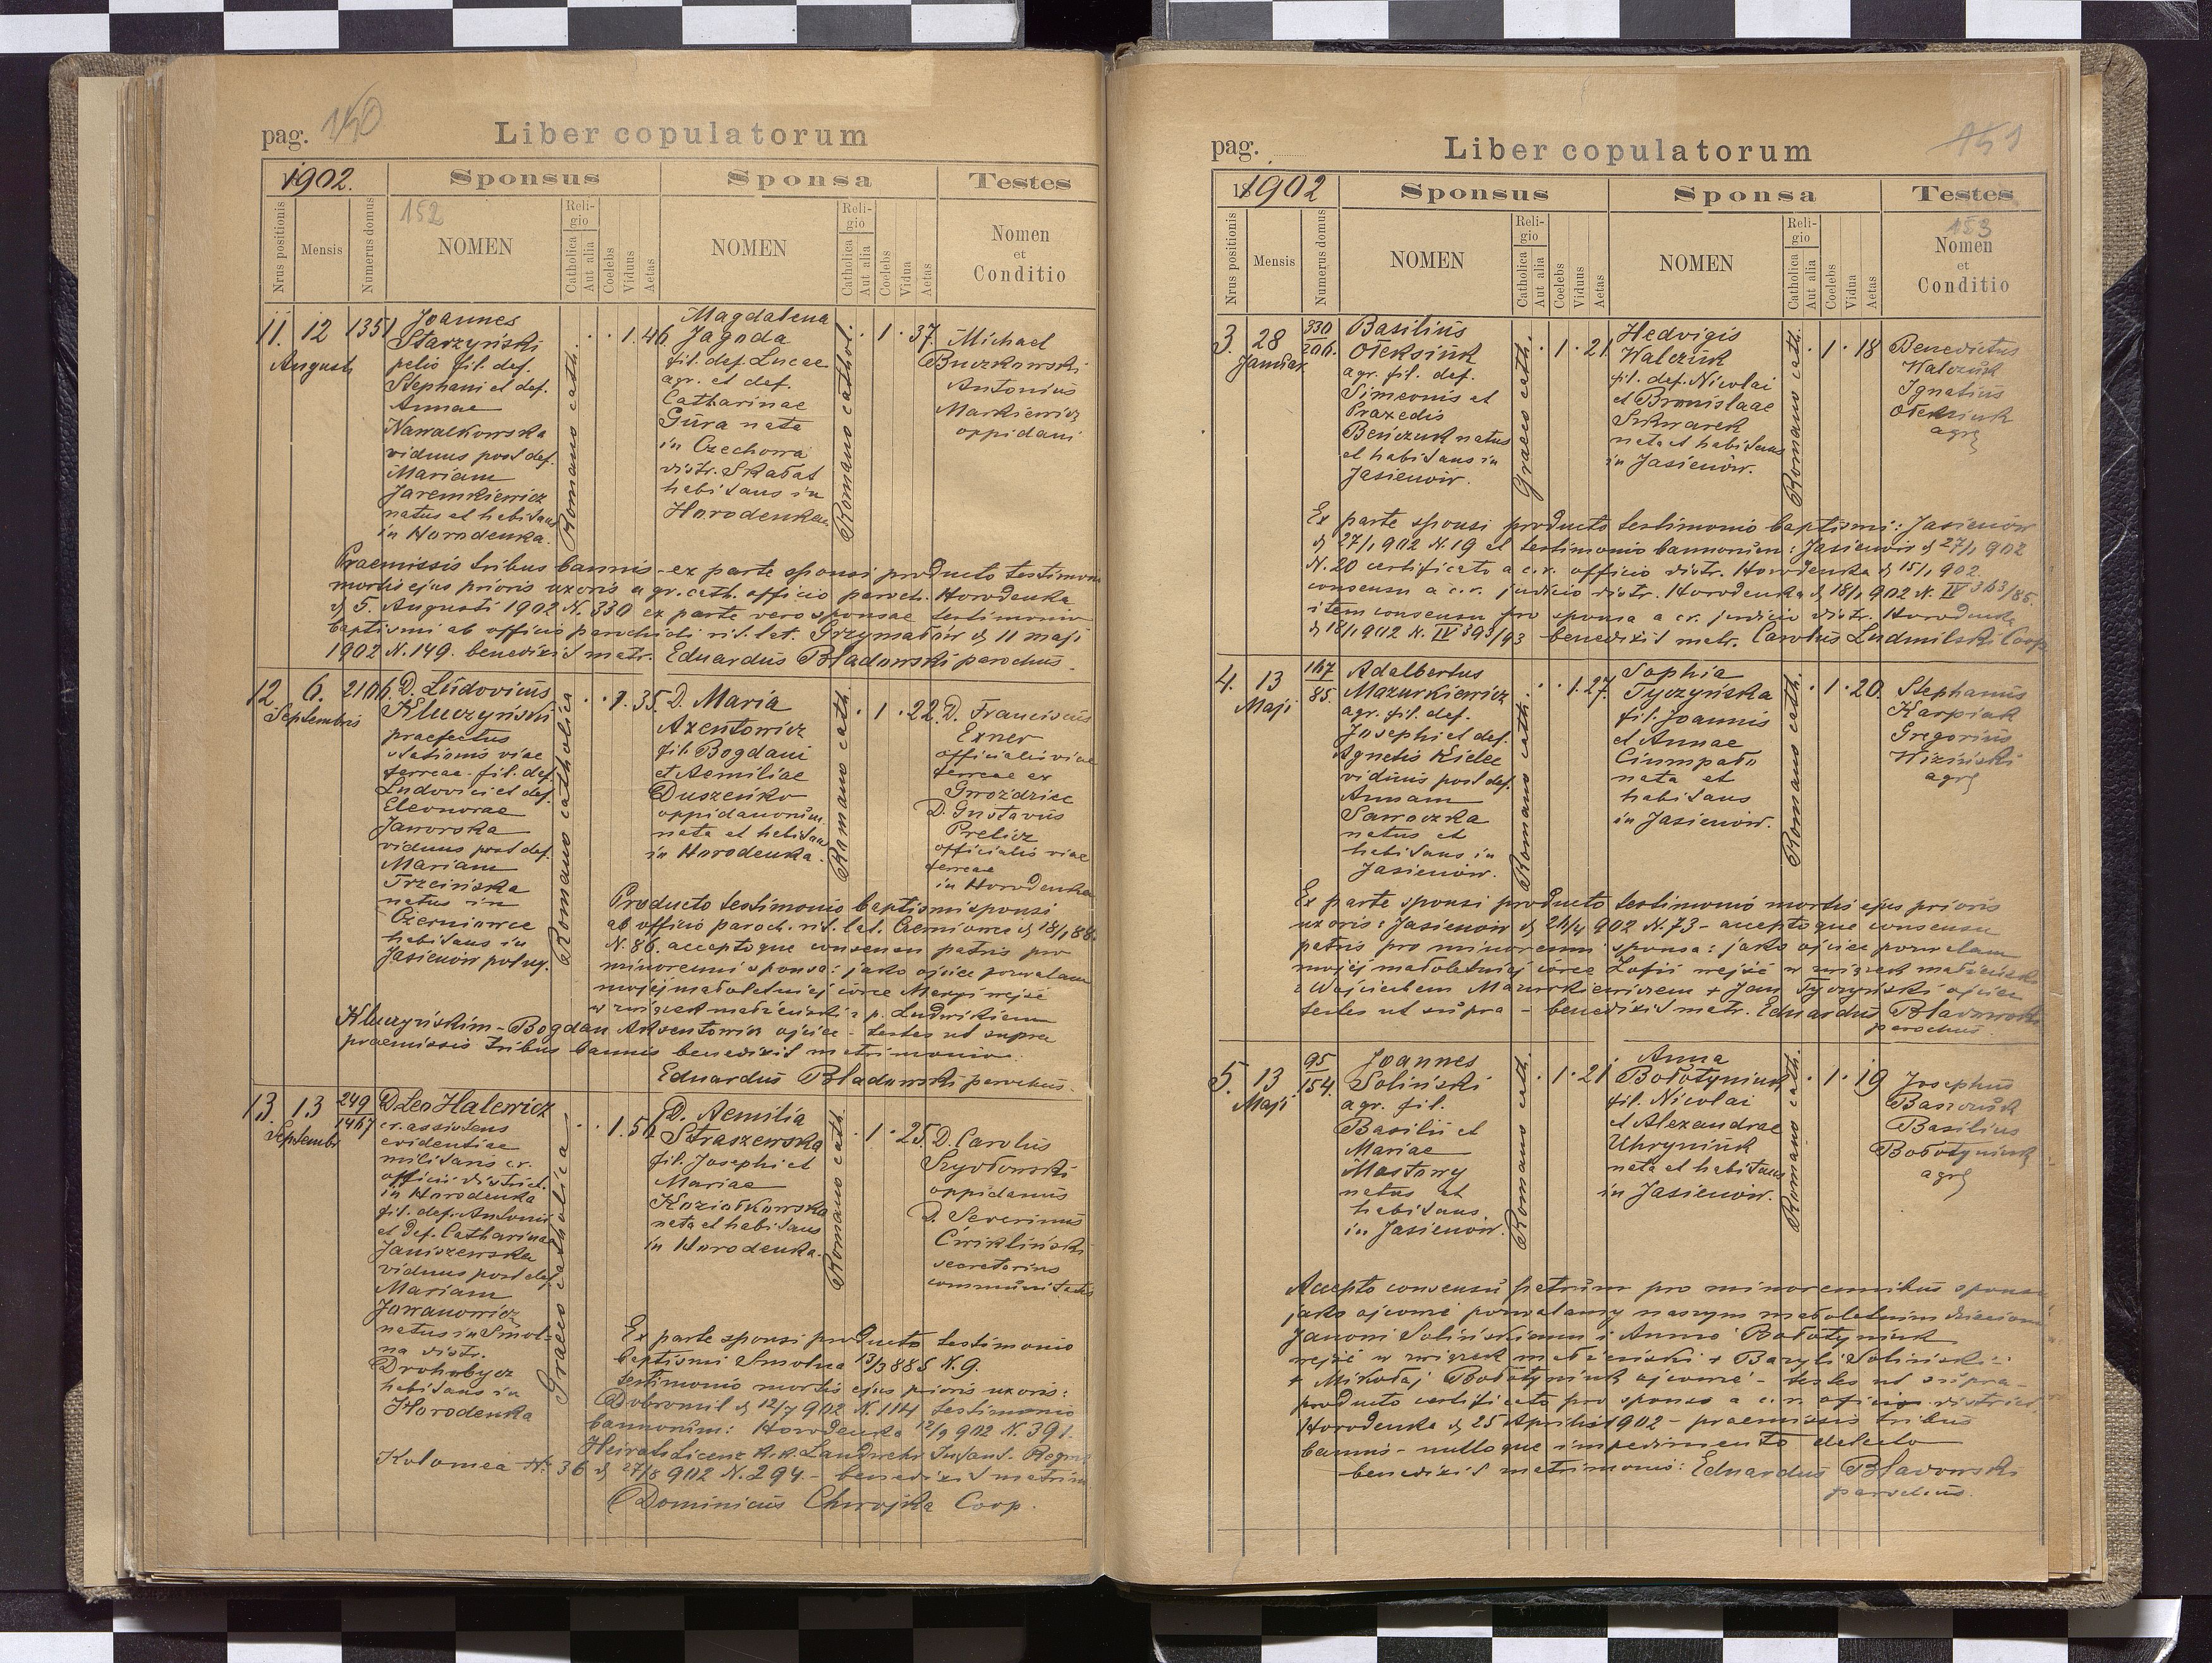 pag. 150
Liber copulatorum
1902.
Sponsus
Sponsa
Testes
Nrus positionis
Mensis
Numerus domus
152
NOMEN
Religio
Catholica
Aut alia
Coelebs
Viduus
Aetas
NOMEN
Religio
Catholica
Aut alia
Coelebs
Vidua
Aetas
Nomen
et
Conditio
11. 12 1351
Augusti
Joannes
Starzyński
pelio fil. def.
Stephani et def.
Annae
Nawalkowska
viduus post def.
Mariam
Jaremkiewicz
natus et habitans
in Horodenka.
Romano cath.
1. 46
Magdalena
Jagoda
fil. def. Lucae
agr. et def.
Catharinae
Gura nata
in Czechowa
distr. Skałat
habitans in
Horodenka
Romano cathol.
1. 37.
Michael
Buczkowski
Antonius
Markiewicz
oppidani
Praemissis tribus bannis - ex parte sponsi producto testimonio
mortis ejus prioris uxoris a gr. cath. officio paroch. Horodenka
d 5. Augusti 1902 N. 330 ex parte vero sponsae testimonio
baptismi ab officio parochiali rit. lat. Grzymałów d 11 maji
1902 N. 149. benedixit matr. Eduardus Bładowski parochus.
12. 6. 2106.
Septembris
D. Ludovicus
Kluczyński
praefectus
stationis viae
ferreae. fil. def.
Ludovici et def.
Eleonorae
Jaworska
viduus post def.
Mariam
Trzcińska
natus in
Czerniowce
habitans in
Jasienów polny.
Romano catholica
1. 35.
D. Maria
Axentowicz
fil. Bogdani
et Aemiliae
Duszeńko
oppidanorum.
nata et habitans
in Horodenka.
Romano cath.
1. 22.
D. Franciscus
Exner
officialis viae
ferreae ex
Gwoździec
D. Gustavus
Prelicz
officialis viae
ferreae
in Horodenka
Producto testimonio baptismi sponsi
ab officio paroch. rit. lat. Czerniowce d 18/1 88.
N. 86. acceptoque consensu patris pro
minorenni sponsa: jako ojciec pozwalam
mojej małoletniej córce Maryi wejść
w związek małżeński z p. Ludwikiem
Kluczyńskim - Bogdan Aksentowicz ojciec - testes ut supra
praemissis tribus bannis benedixit matrimonio.
Eduardus Bładowski parochus.
13. 13 249
1467
Septembr
D. Leo Halewicz
cr. assistens
evidentiae
militaris cr.
officii district.
in Horodenka
fil. def. Antonii
et def. Catharinae
Janiszewska
viduus post def.
Mariam
Jawanowicz
natus in Smol-
na distr.
Drohobycz
habitans in
Horodenka
Graeco catholica
D. Aemilia
Straszewska
fil. Josephi et
Mariae
Koziołkowska
nata et habitans
in Horodenka.
Romano cath.
1. 25.
D. Carolus
Szydłowski
oppidanus
D. Severinus
Ćwikliński
secretarius
communitatis
Ex parte sponsi producto testimonio
baptismi Smolna 13/3 885 N. 9.
testimonio mortis ejus prioris uxoris:
Dobromil d 12/7 902 N. 114 testimonio
bannorum: Horodenka 12/9 902 N. 391.
Heiraths Licenz k.k. Landwehr Infant. Regmt
Kolomea Nr. 36 d 27/8 902 N. 294. - benedixit matrim
Dominicus Chwojka Coop.
pag.
Liber copulatorum
151
1902
Sponsus
Sponsa
Testes
Nrus positionis
Mensis
Numerus domus
NOMEN
Religio
Catholica
Aut alia
Coelebs
Viduus
Aetas
NOMEN
Religio
Catholica
Aut alia
Coelebs
Vidua
Aetas
153
Nomen
et
Conditio
3. 28 330
206.
Januar.
Basilius
Ołeksiuk
agr. fil. def.
Simeonis et
Praxedis
Beńczuk natus
et habitans in
Jasienów.
Graeco cath.
1. 21
Hedvigis
Walczuk
fil. def. Nicolai
et Bronislaae
Skwarek
nata et habitans
in Jasienów.
Romano cath.
1. 18
Benedictus
Walczuk
Ignatius
Ołeksiuk
agr
Ex parte sponsi producto testimonio baptismi: Jasienów
d 27/1 902 N. 19 et testimonio bannorum: Jasienów d 27/1 902
N. 20 certificato a c.r. officio distr. Horodenka d 15/1 902.
consensu a c.r. judicio distr. Horodenka d 18/1 902 N. IV 363/85.
item consensu pro sponsa a cr. judicio distr. Horodenka
d 18/1 902 N. IV 393/93 - benedixit matr. Carolus Ludmilski Coop
4. 13 167
85.
Maji
Adalbertus
Mazurkiewicz
agr. fil. def.
Josephi et def.
Agnetis Kielec
viduus post def.
Annam
Sawoczka
natus et
habitans in
Jasienów.
Romano cath.
1. 27.
Sophia
Tyczyńska
fil. Joannis
et Annae
Ciumpało
nata et
habitans
in Jasienów.
Romano cath.
1. 20.
Stephanus
Karpiak
Gregorius
Wiziński
agr
Ex parte sponsi producto testimonio mortis ejus prioris
uxoris: Jasienów d 24/4 902 N. 73 - acceptoque consensu
patris pro minorenni sponsa: jako ojciec pozwalam
mojej małoletniej córce Zofii wejść w związek małżeński
z Wojciechem Mazurkiewiczem + Jan Tyczyński ojciec
testes ut supra - benedixit matr. Eduardus Bładowski
parochus.
5. 13 95
154.
Maji
Joannes
Soliński
agr. fil.
Basilii et
Mariae
Mostowy
natus et
habitans
in Jasienów.
Romano cath.
1. 21
Anna
Bołotyniuk
fil. Nicolai
et Alexandrae
Uhryniuk
nata et habitans
in Jasienów.
Romano cath.
1. 19
Josephus
Basiuk
Basilius
Bołotyniuk
agr
Accepto consensu patrum pro minorennibus sponsis
jako ojcowie pozwalamy naszym małoletnim dzieciom
Janowi Solińskiemu i Annie Bołotyniuk
wejść w związek małżeński + Bazyli Soliński
+ Mikołaj Bołotyniuk ojcowie - testes ut supra -
producto certificato pro sponso a c.r. oficio district.
Horodenka d 25 Aprilis 1902 - praemissis tribus
bannis - nulloque impedimento detecto
benedixit matrimonio: Eduardus Bładowski
parochus.